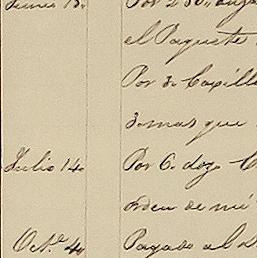 Junio 18. Por 2
el Paquete
Por 3. Capillo
3 mas que
Julio 14. Por 6. dogs
orden de mi
Oct.e 4. Pagado al D